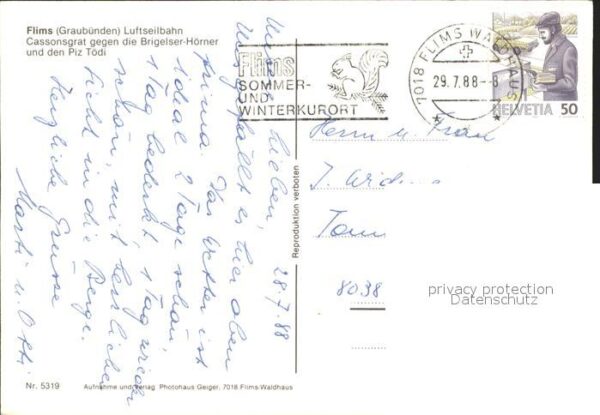 Flims (Graubünden) Luftseilbahn
Cassonsgrat gegen die Brigelser-Hörner
und den Piz Tödi
Flims
SOMMER-
UND
WINTERKURORT
7018 FLIMS WALDHAUS
29.7.88-8
HELVETIA 50
28.7.88
Lieben,
gefällt es hier oben
prima. Das Wetter ist
ideal 2 Tage schön,
1 Tag bedeckt 1 Tag wieder
schön, mit herrlicher
Sicht in die Berge.
Herzliche Grüsse
Marti u. Otti
Herrn u. Frau
J.
Tom
8038
Reproduktion verboten
privacy protection
Datenschutz
Nr. 5319
Aufnahme und Verlag Photohaus Geiger, 7018 Flims-Waldhaus